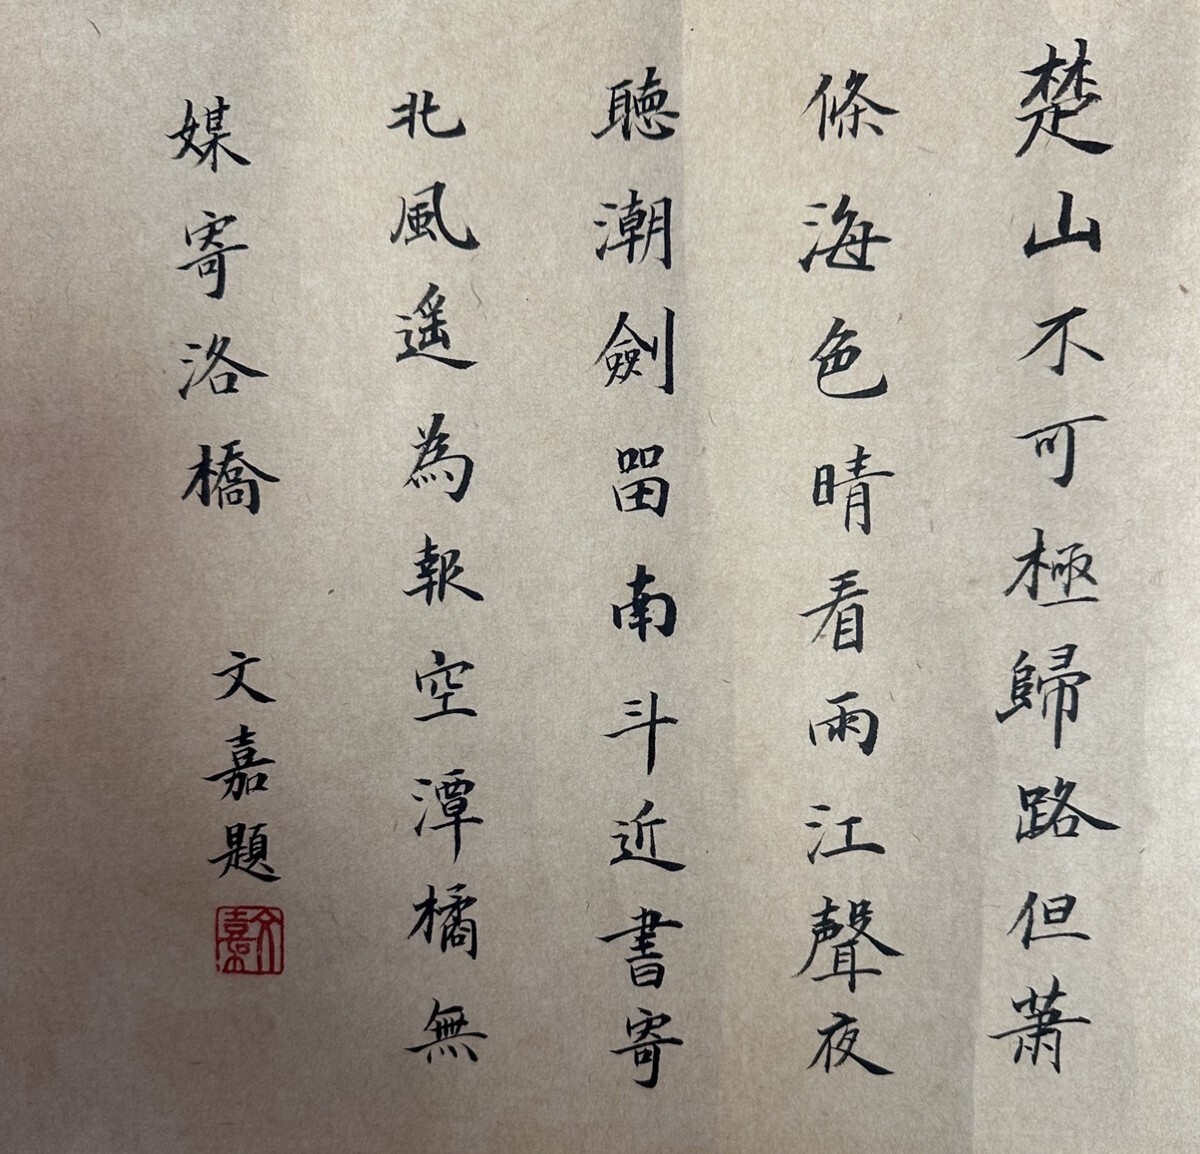 楚山不可極歸路但蕭
條海色晴看雨江聲夜
聽潮劍留南斗近書寄
北風遥為報空潭橘無
媒寄洛橋
文嘉題
文嘉